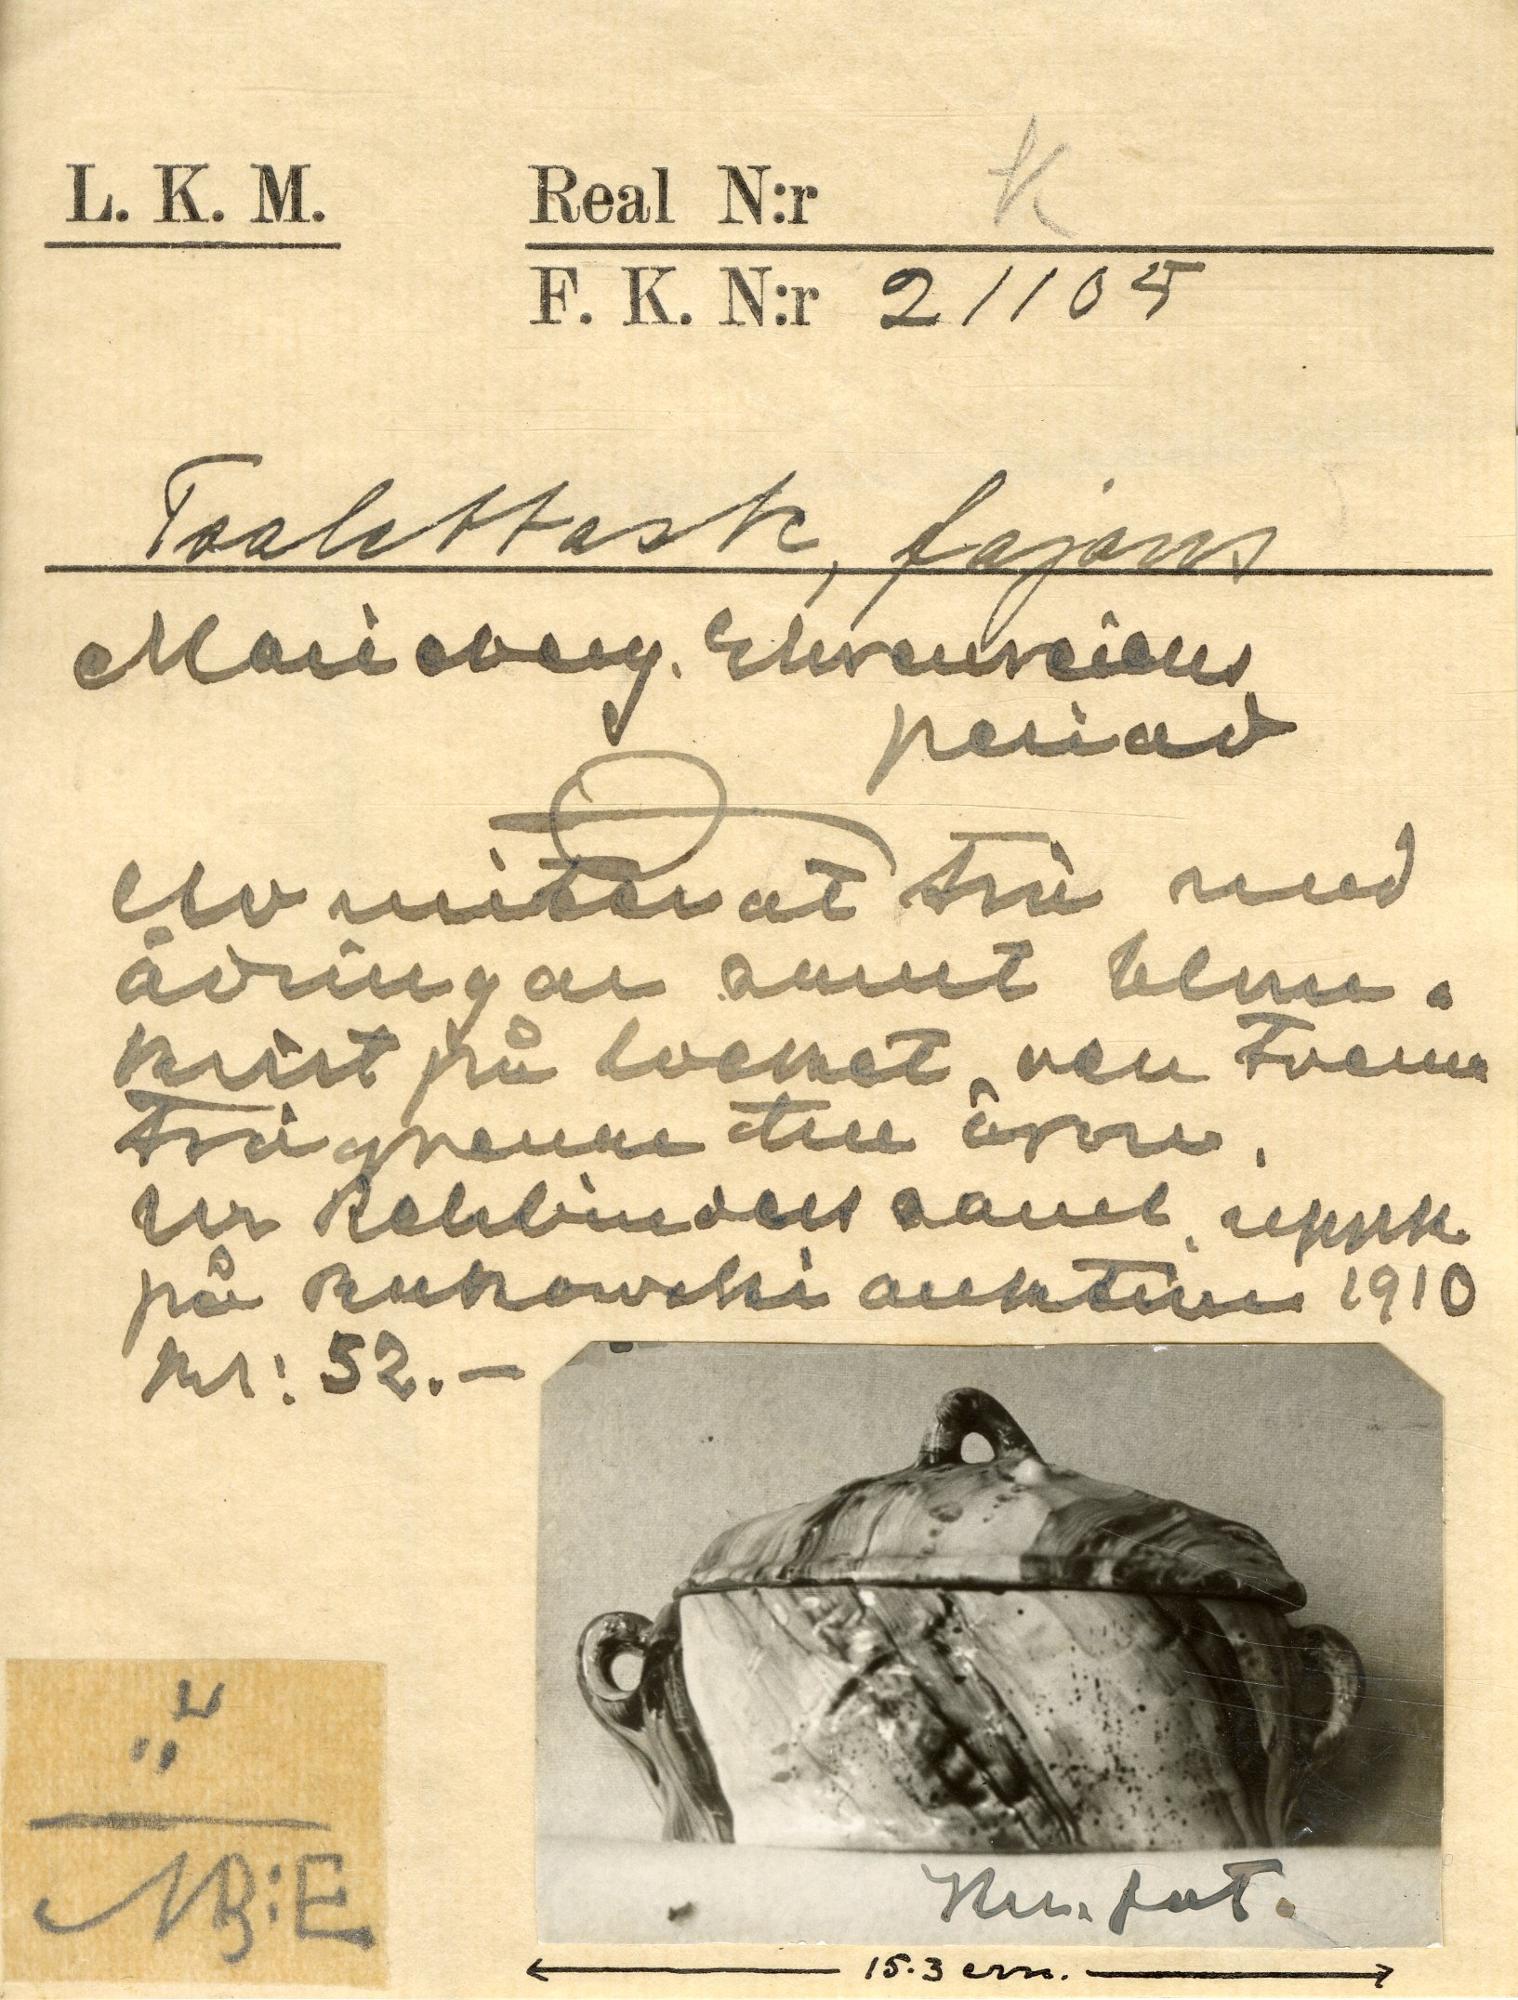 L. K. M.
Real N:r K
F. K. N:r 21105
Toalettask, fajans
Marieberg. Ehrenreichs
period
Av militerat trä med
ådringar samt blom-
kvist på locket, den
trägrenar till öron.
Ur Rehbinders saml. uppk.
på Bukowski auktion 1910
Kr: 52.-
MB:E
Kn. fot.
15.3 cm.